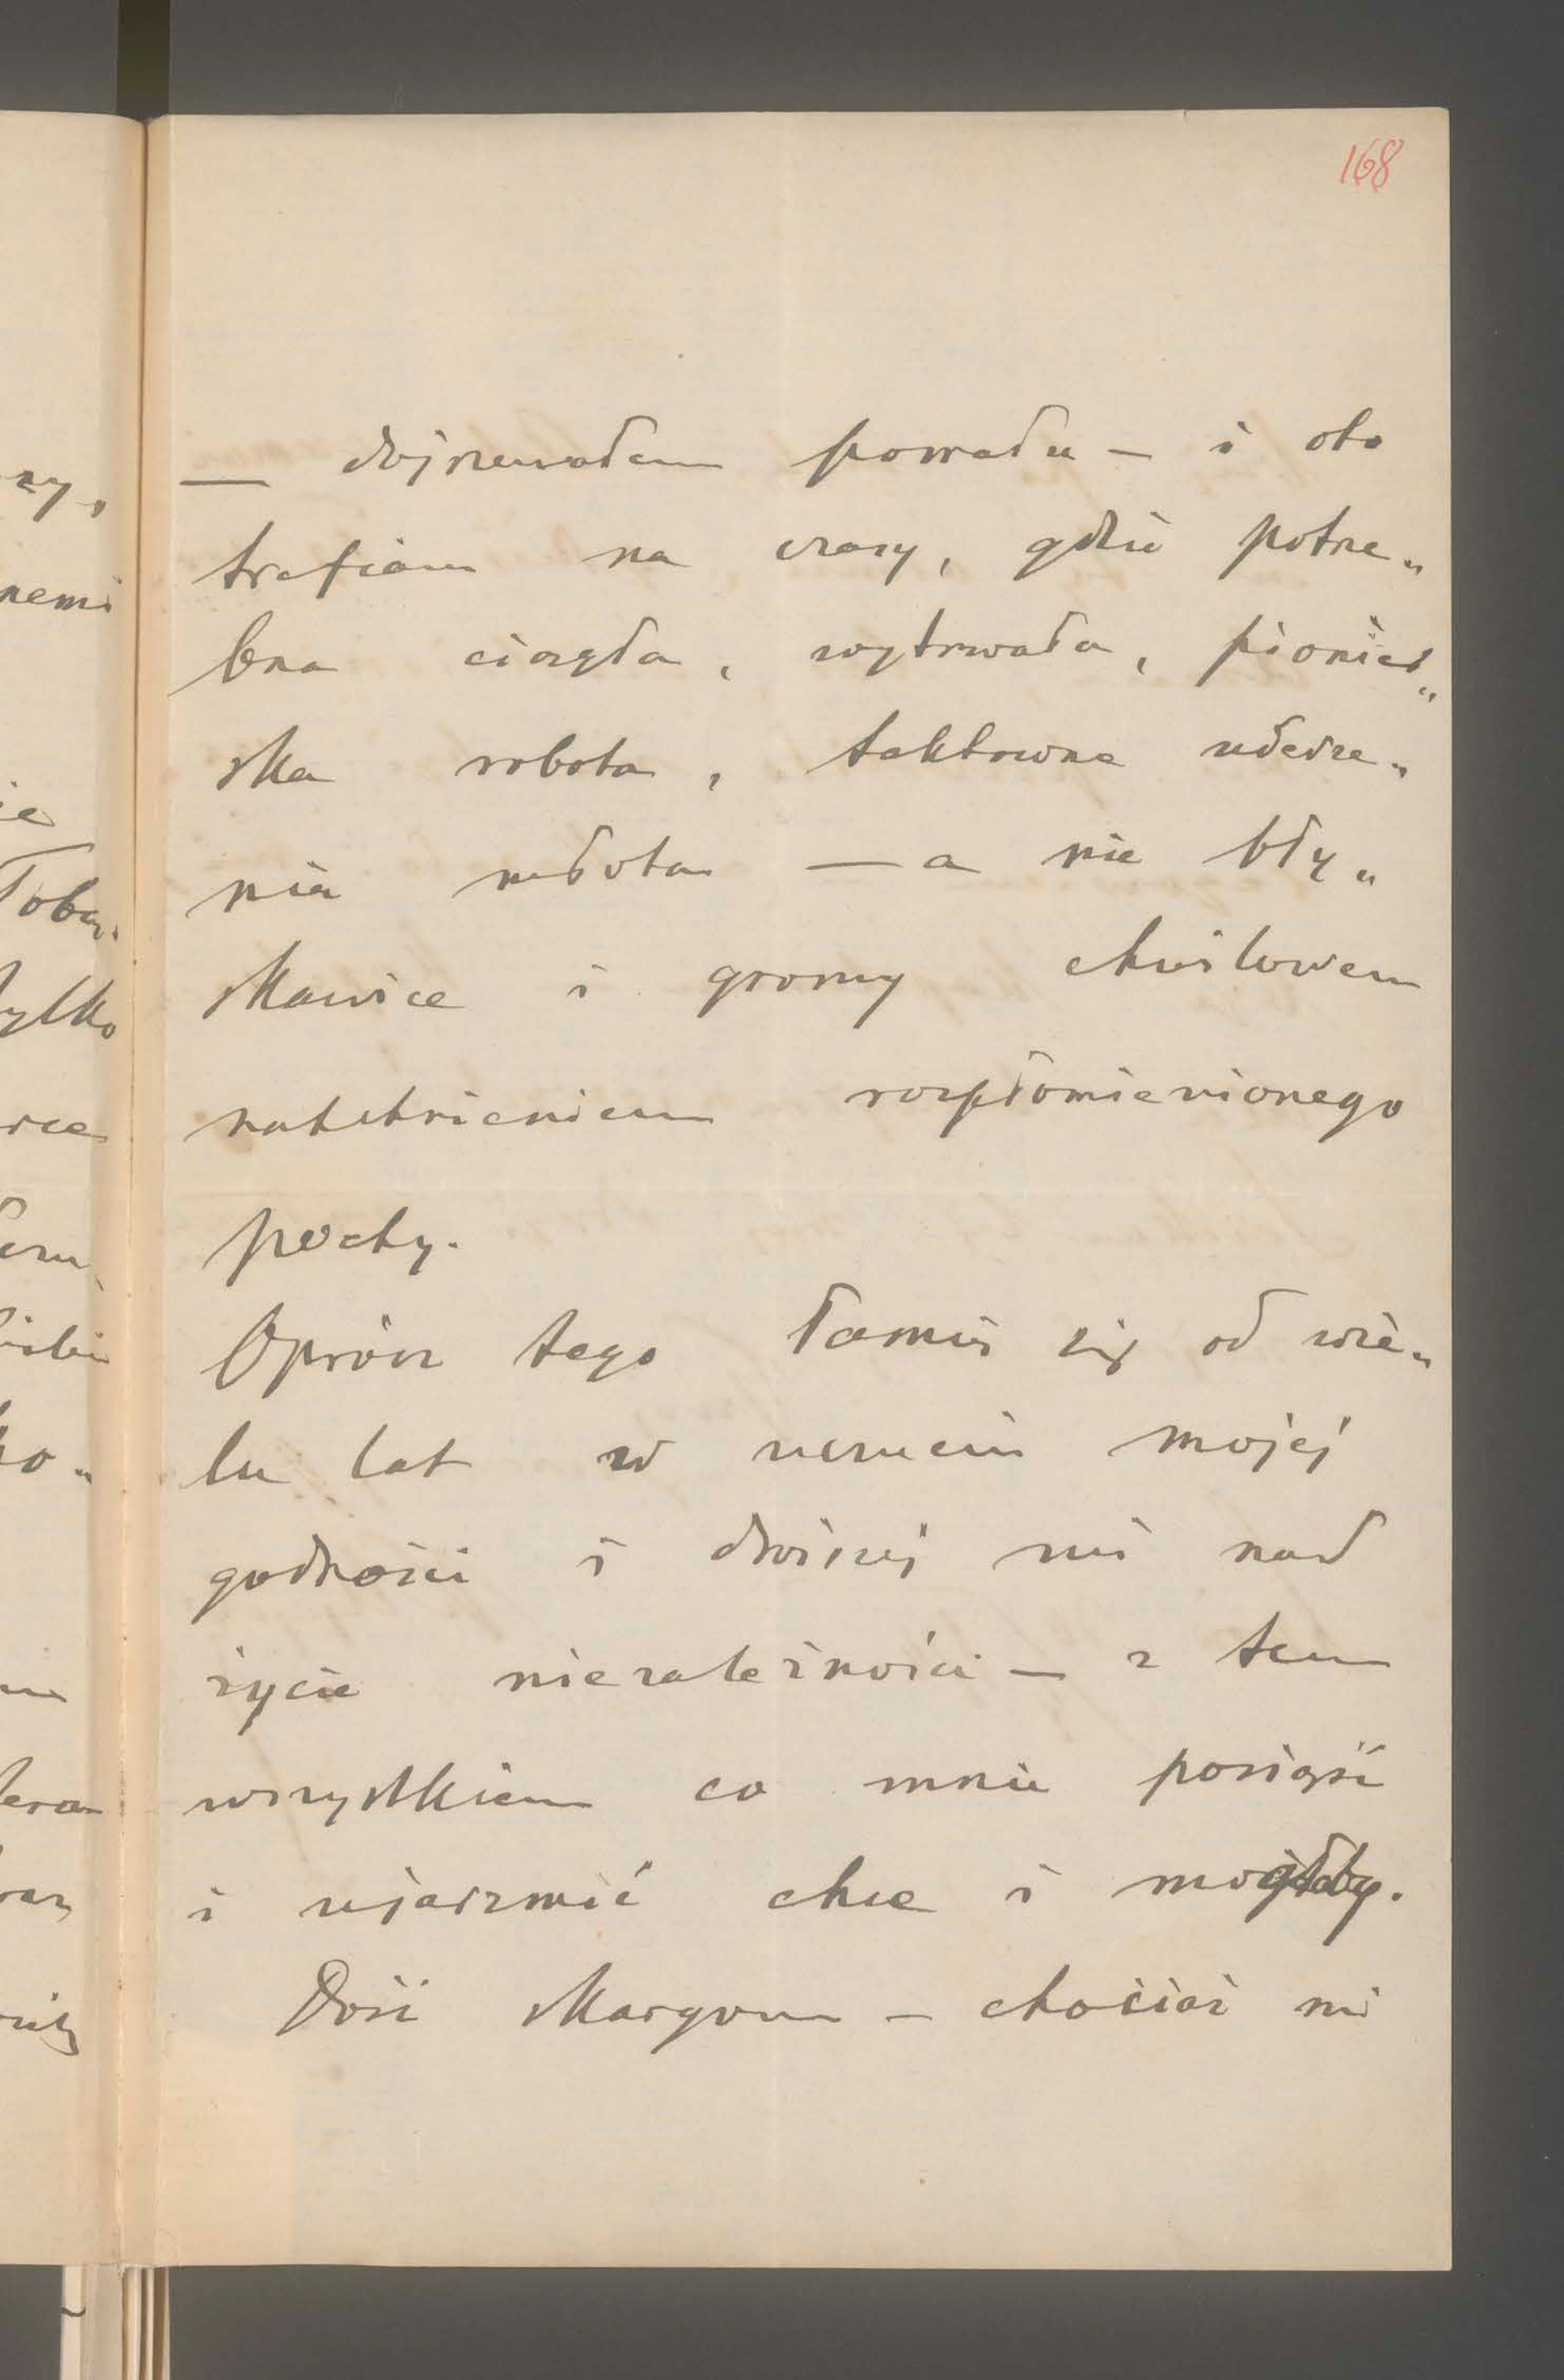 168
— dojrzewałem pomału — i oto
trafiam na czasy, gdzie potrze„
bna ciągła, wytrwała, pionier„
ska robota, taktowne uderze„
nia młota — a nie bły„
skawice i gromy chwilowem
natchnieniem rozpłomienionego
poety.
Oprócz tego łamię się od wie„
lu lat w uczuciu mojej
godności i droższej mi nad
życie niezależności — z tem
wszystkiem co mnie posiąść
i ujarzmić chce i mogłoby.
Dość skargom — chociaż mi